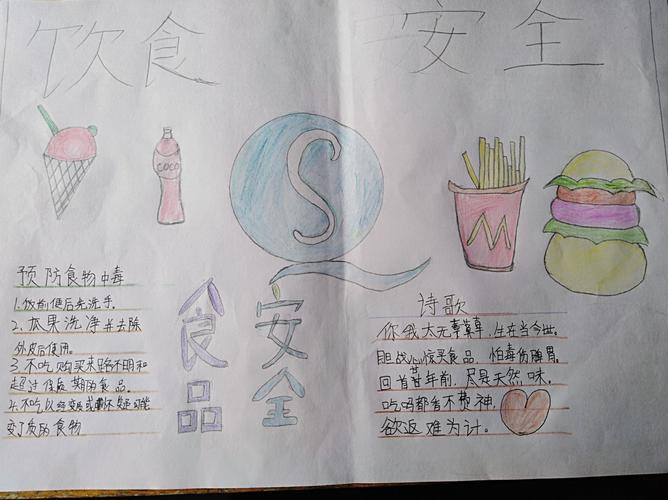 饮食安全
COCO
S
M
食品
安全
预防食物中毒
1.饭前便后先洗手。
2.瓜果洗净并去除
外皮后使用。
3.不吃购买来路不明和
超过保质期的食品。
4.不吃以经变质或
变了质的食物
诗歌
你我太无辜，生在当今世。
胆战心惊买食品，怕毒伤脾胃。
回首廿年前，尽是天然味。
吃吗都香不费神，
欲返难为计。